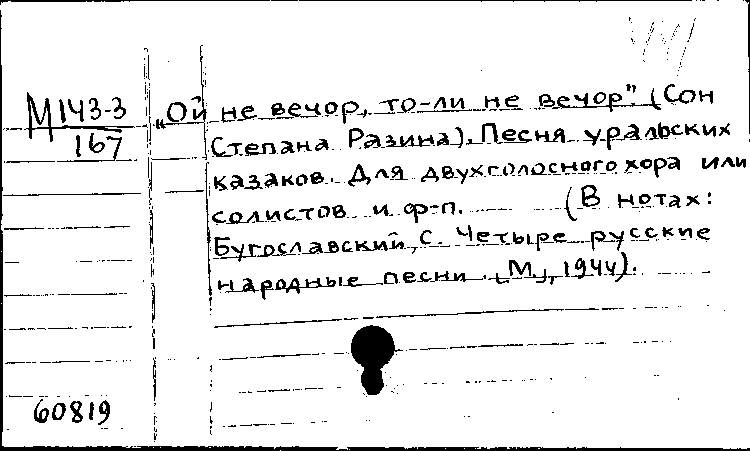 М143-3
167
„Ой не вечор, то-ли не вечор". (Сон
Степана Разина). Песня уральских
казаков. Для двухголосного хора или
солистов и ф-п. (В нотах:
Бугославский, С. Четыре русские
народные песни. [М.], 1944).
60819